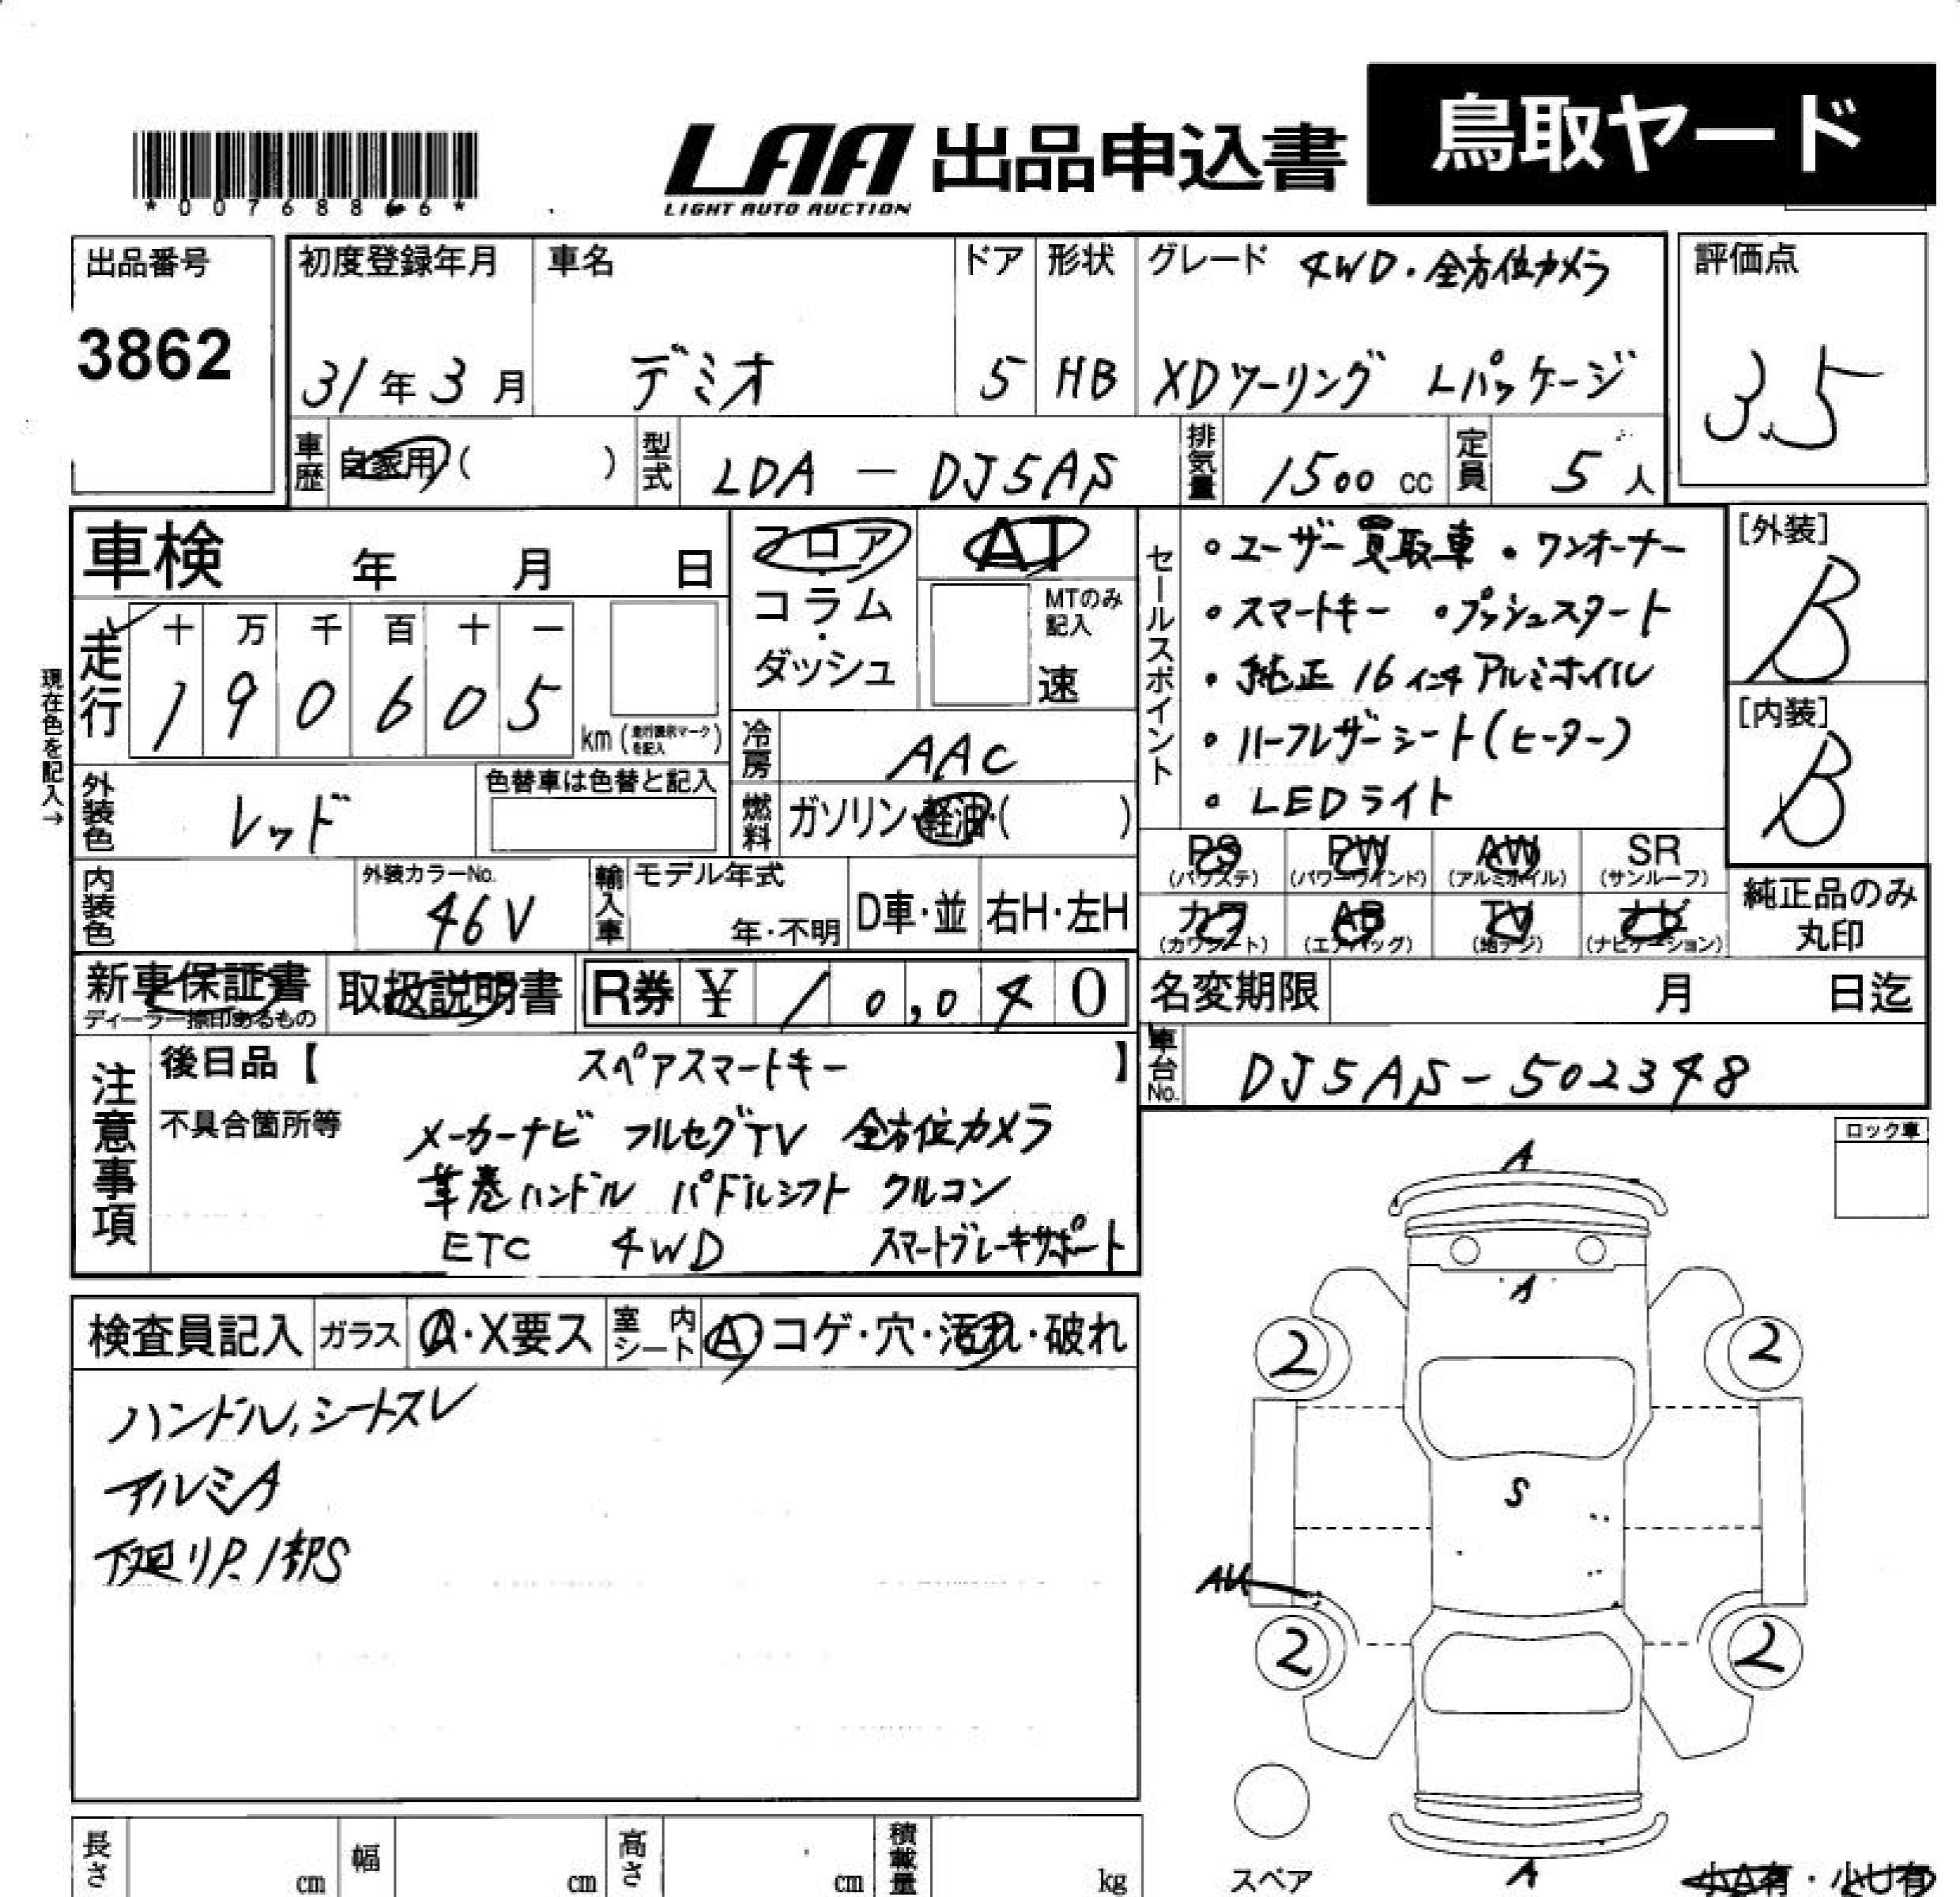 鳥取ヤード
LAA 出品申込書
LIGHT AUTO AUCTION
*00768866*
出品番号
3862
初度登録年月
31年3月
車名
デミオ
ドア
5
形状
HB
グレード 4WD・全方位カメラ
XDツーリング Lパッケージ
評価点
3.5
車歴
自家用・( )
型式
LDA － DJ5AS
排気量
1500 cc
定員
5 人
車検 年 月 日
フロア・コラム・ダッシュ
AT
MTのみ記入
速
セールスポイント
・ユーザー買取車 ・ワンオーナー
・スマートキー ・プッシュスタート
・純正16インチアルミホイル
・ハーフレザーシート(ヒーター)
・LEDライト
[外装]
B
[内装]
B
現在色を記入→
走行
十 万 千 百 十 一
1 9 0 6 0 5
km (走行表示マークを記入)
冷房
AAC
外装色
レッド
色替車は色替と記入
燃料
ガソリン・軽油・( )
PS (パワステ)
PW (パワーウインド)
AW (アルミホイル)
SR (サンルーフ)
カワ (カワシート)
AB (エアバッグ)
TV (地デジ)
ナビ (ナビゲーション)
純正品のみ丸印
内装色
外装カラーNo.
46V
輸入車
モデル年式
年・不明
D車・並
右H・左H
新車保証書
ディーラー捺印あるもの
取扱説明書
R券 ￥ 10,040
名変期限 月 日迄
車台No.
DJ5AS-502348
注意事項
後日品【 スペアスマートキー 】
不具合箇所等
メーカーナビ フルセグTV 全方位カメラ
革巻ハンドル パドルシフト クルコン
ETC 4WD スマートブレーキサポート
ロック車
検査員記入
ガラス
A・X要ス
室内シート
A・コゲ・穴・汚れ・破れ
ハンドル、シートスレ
アルミA
下廻りP.1部S
A
A
2
2
S
AU
2
2
A
スペア
小A有・小U有
長さ cm
幅 cm
高さ cm
積載量 kg